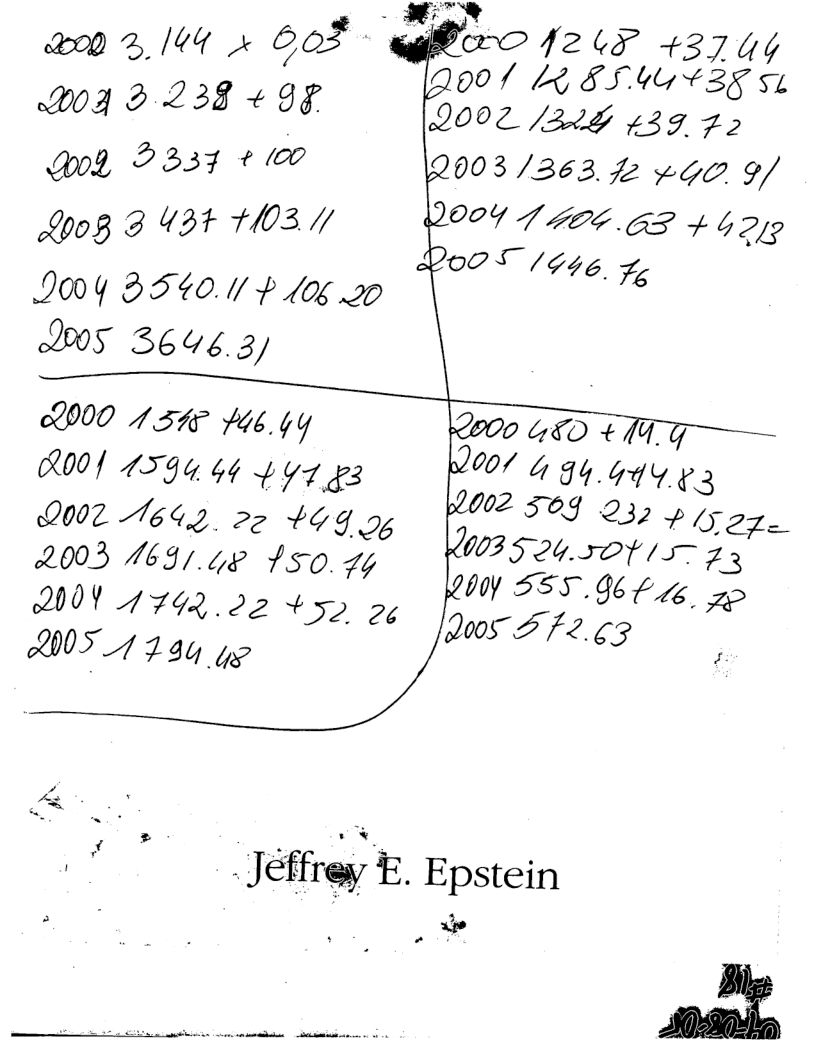 2000 3.144 x 0,03
2001 3.238 + 98.
2002 3337 + 100
2003 3437 + 103.11
2004 3540.11 + 106.20
2005 3646.31
2000 1248 + 37.44
2001 1285.44 + 38 56
2002 1324 + 39.72
2003 1363.72 + 40.91
2004 1404.63 + 42,13
2005 1446.76
2000 1548 + 46.44
2001 1594.44 + 47.83
2002 1642.22 + 49.26
2003 1691.48 + 50.74
2004 1742.22 + 52.26
2005 1794.48
2000 480 + 14.4
2001 494.4 + 14.83
2002 509 232 + 15.27 =
2003 524.50 + 15.73
2004 555.96 + 16.78
2005 572.63
Jeffrey E. Epstein